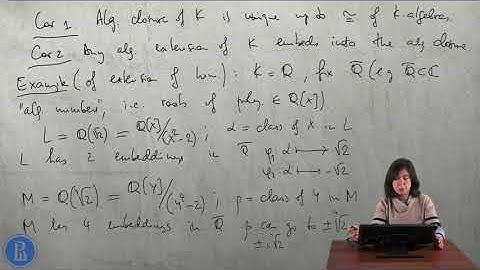 Cor 1 Alg. closure of K is unique up to ≅ of K-algebras
Cor 2 Any alg. extension of K embeds into the alg closure
Example (of extension of hom): K = Q, fix Q̅ (eg Q̅⊂C
"alg numbers", i.e. roots of polyn ∈ Q[X])
L = Q(√2) = Q[X]/(X²-2) ; α = class of X in L
L has 2 embeddings in Q̅ φ₁ α ↦ √2
φ₂ α ↦ -√2
M = Q(⁴√2) = Q[Y]/(Y⁴-2) ; β = class of Y in M
M has 4 embeddings in Q̅ β can go to ± ⁴√2,
± i ⁴√2